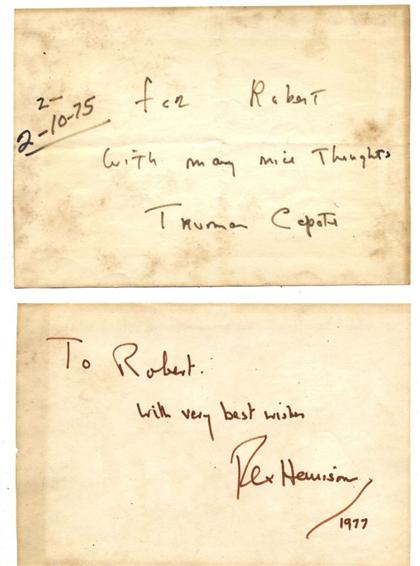 2-
2-10-75
for Robert
with many nice Thoughts
Truman Capote
To Robert.
with very best wishes
Rex Harrison
1977